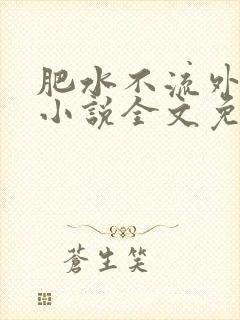 肥水不流外
小說全文免
蒼生笑